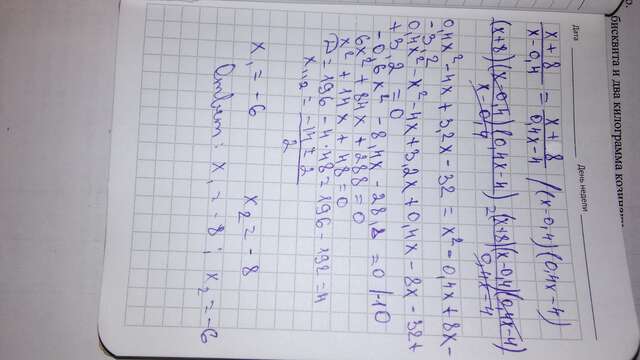 бисквита и два килограмма
Дата
День недели
x + 8 / x - 0,4 = x + 8 / 0,4x - 4 /(x - 0,4)(0,4x - 4)
(x+8)(x-0,4)(0,4x-4) / x - 0,4 = (x+8)(x-0,4)(0,4x-4) / 0,4x - 4
0,4x² - 4x + 3,2x - 32 = x² - 0,4x + 8x -
- 3,2
0,4x² - x² - 4x + 3,2x + 0,4x - 8x - 32 +
+ 3,2 = 0
-0,6x² - 8,4x - 28,8 = 0 /·10
6x² + 84x + 288 = 0
x² + 14x + 48 = 0
D = 196 - 4·48 = 196 - 192 = 4
x₁,₂ = -14 ± 2 / 2
x₁ = -6 x₂ = -8
Ответ: x₁ = -8; x₂ = -6